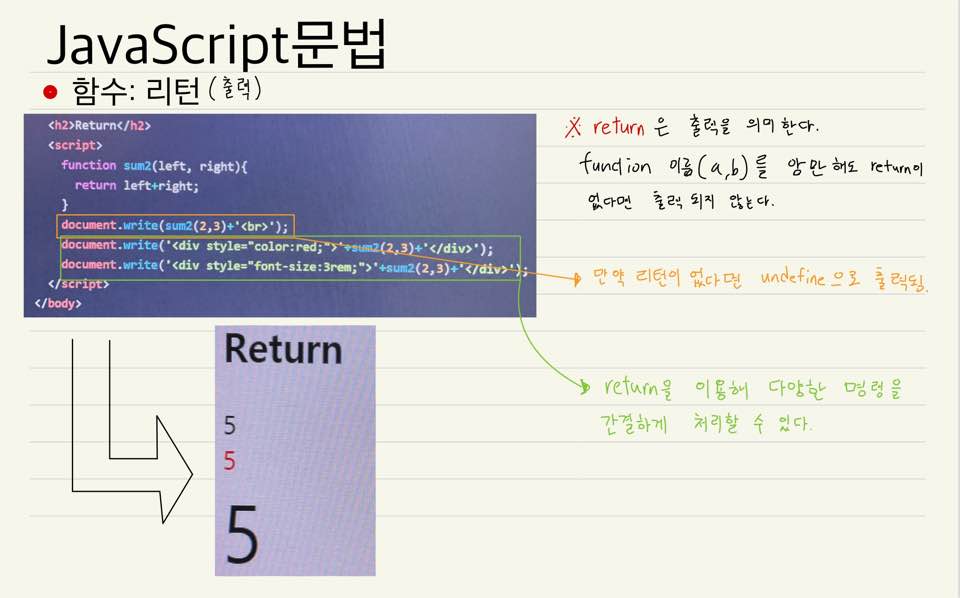 JavaScript문법
함수: 리턴 (출력)
<h2>Return</h2>
<script>
function sum2(left, right){
return left+right;
}
document.write(sum2(2,3)+'<br>');
document.write('<div style="color:red;">'+sum2(2,3)+'</div>');
document.write('<div style="font-size:3rem;">'+sum2(2,3)+'</div>');
</script>
</body>
※ return은 출력을 의미한다.
function 이름(a,b)를 암만해도 return이
없다면 출력 되지 않는다.
만약 리턴이 없다면 undefine으로 출력됨.
return을 이용해 다양한 명령을
간결하게 처리할 수 있다.
Return
5
5
5